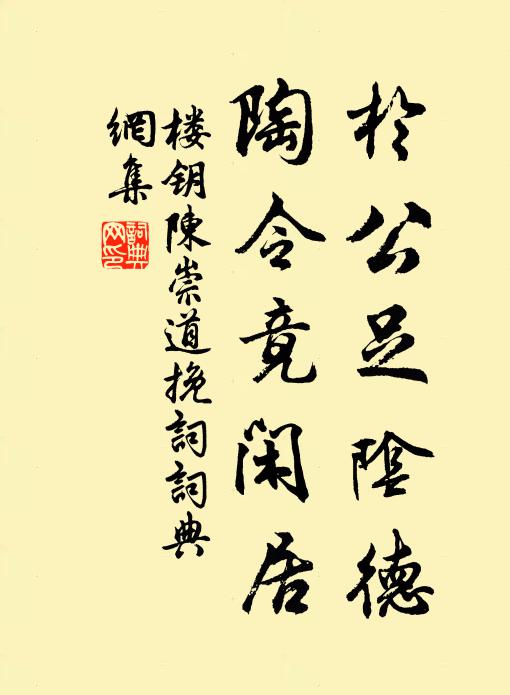 於公足陰德
陶令竟闲居
楼钥陳崇道挽詞詞典
網集
詞典网印